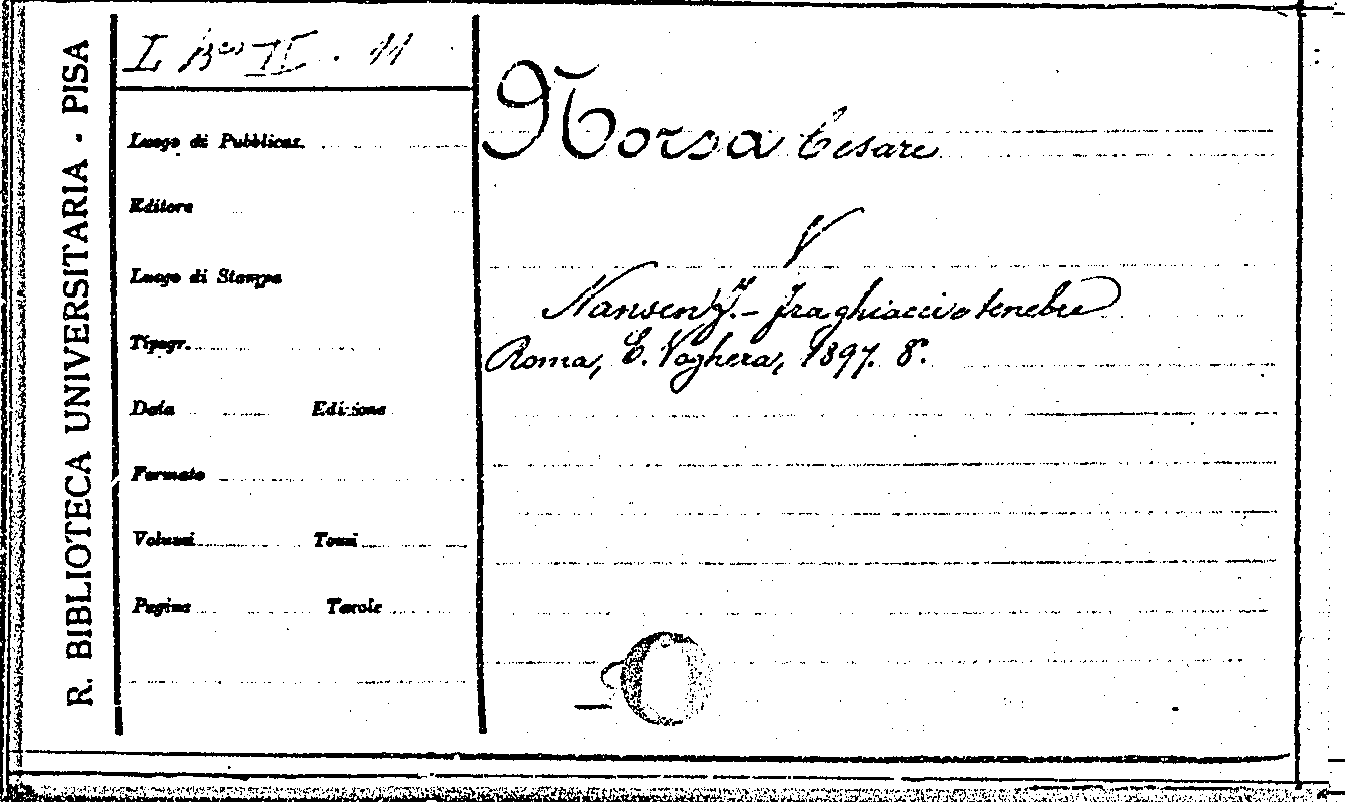 R. BIBLIOTECA UNIVERSITARIA - PISA
II . 11
Luogo di Pubblicaz.
Editore
Luogo di Stampa
Tipogr.
Data Edizione
Formato
Volumi Tomi
Pagine Tavole
Norsa Cesare
V
Nansen, F. - Fra ghiacci e tenebre
Roma, E. Voghera, 1897. 8°.